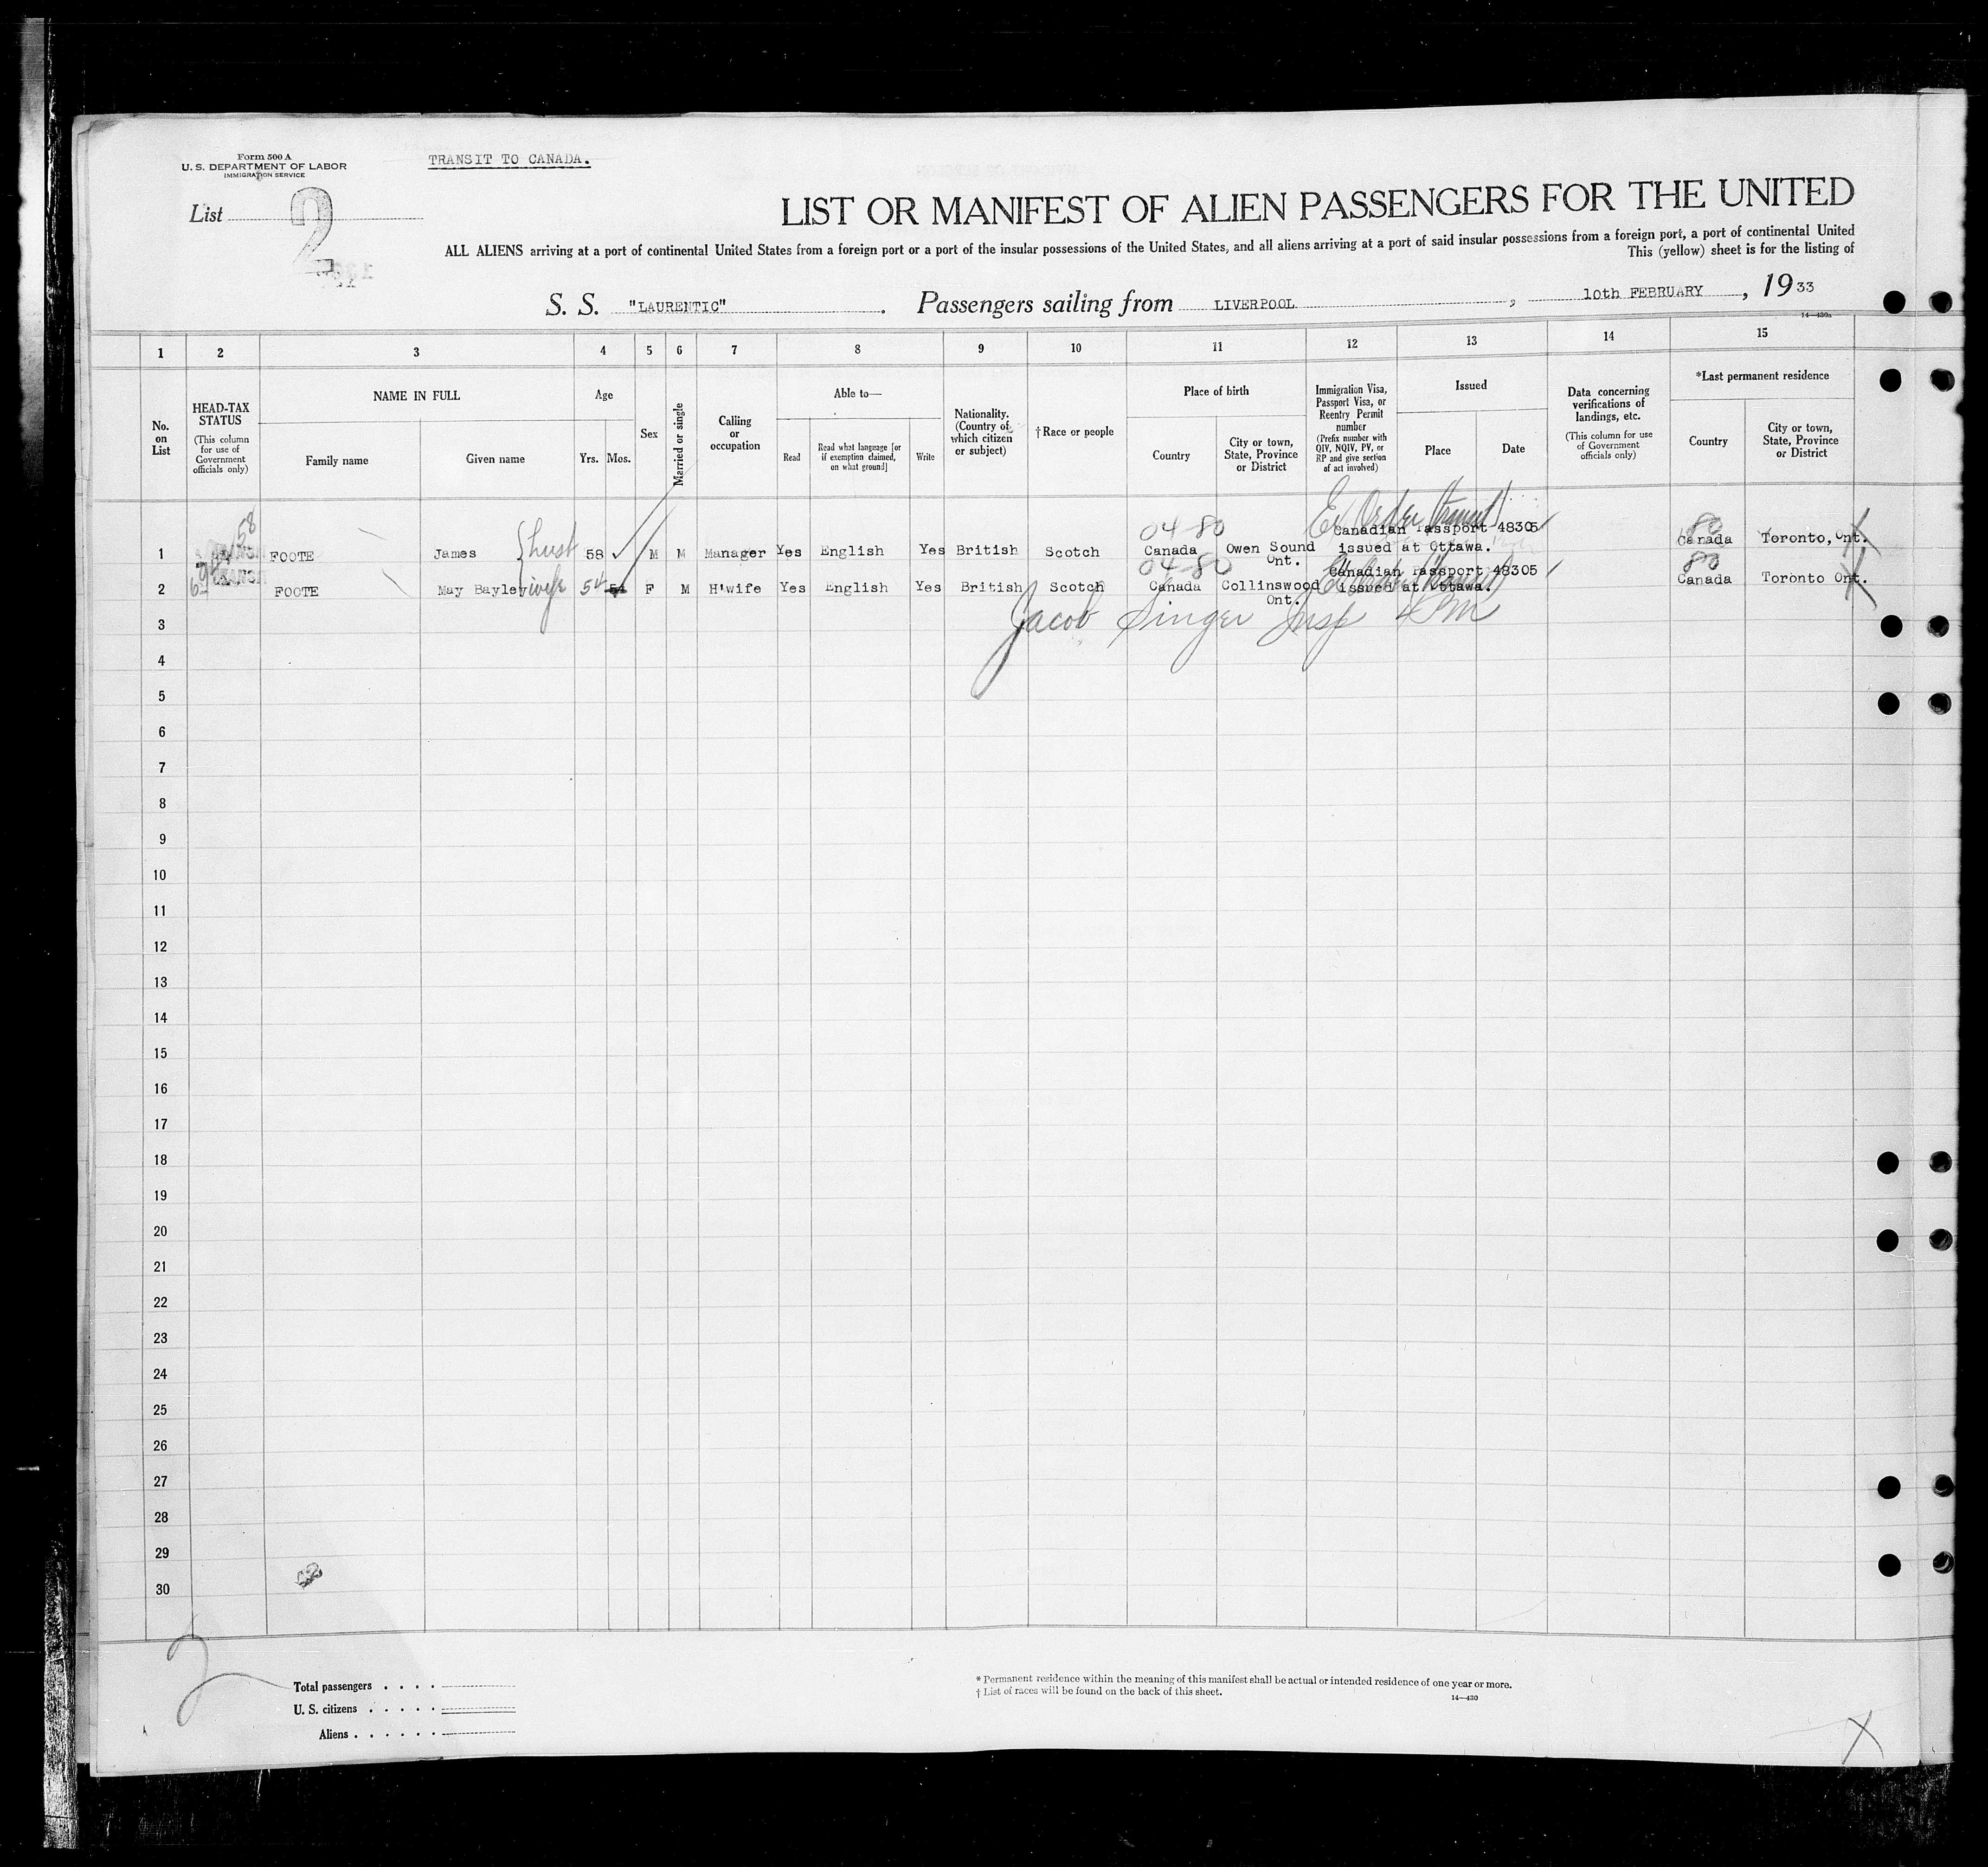 Form 500 A
U. S. DEPARTMENT OF LABOR
IMMIGRATION SERVICE
TRANSIT TO CANADA.
List 2
LIST OR MANIFEST OF ALIEN PASSENGERS FOR THE UNITED
ALL ALIENS arriving at a port of continental United States from a foreign port or a port of the insular possessions of the United States, and all aliens arriving at a port of said insular possessions from a foreign port, a port of continental United
This (yellow) sheet is for the listing of
S. S. "LAURENTIC". Passengers sailing from LIVERPOOL, 10th FEBRUARY, 1933
14—430a
1 2 3 4 5 6 7 8 9 10 11 12 13 14 15
No. on List
HEAD-TAX STATUS
(This column for use of Government officials only)
NAME IN FULL
Family name
Given name
Age
Yrs.
Mos.
Sex
Married or single
Calling or occupation
Able to—
Read
Read what language [or if exemption claimed, on what ground]
Write
Nationality. (Country of which citizen or subject)
†Race or people
Place of birth
Country
City or town, State, Province or District
Immigration Visa, Passport Visa, or Reentry Permit number
(Prefix number with QIV, NQIV, PV, or RP and give section of act involved)
Issued
Place
Date
Data concerning verifications of landings, etc.
(This column for use of Government officials only)
*Last permanent residence
Country
City or town, State, Province or District
04-80
80
1 FOOTE James husb 58 M M Manager Yes English Yes British Scotch Canada Owen Sound Ont. Canadian Passport 48305 issued at Ottawa. Canada Toronto, Ont.
04-80
80
2 FOOTE May Bayley wife 54 51 F M H'wife Yes English Yes British Scotch Canada Collinswood Ont. Canadian Passport 48305 issued at Ottawa. Canada Toronto Ont.
Jacob Singer Insp
3
4
5
6
7
8
9
10
11
12
13
14
15
16
17
18
19
20
21
22
23
24
25
26
27
28
29
30
2
Total passengers . . . .
U. S. citizens . . . . .
Aliens . . . . . .
* Permanent residence within the meaning of this manifest shall be actual or intended residence of one year or more.
† List of races will be found on the back of this sheet.
14—430
X